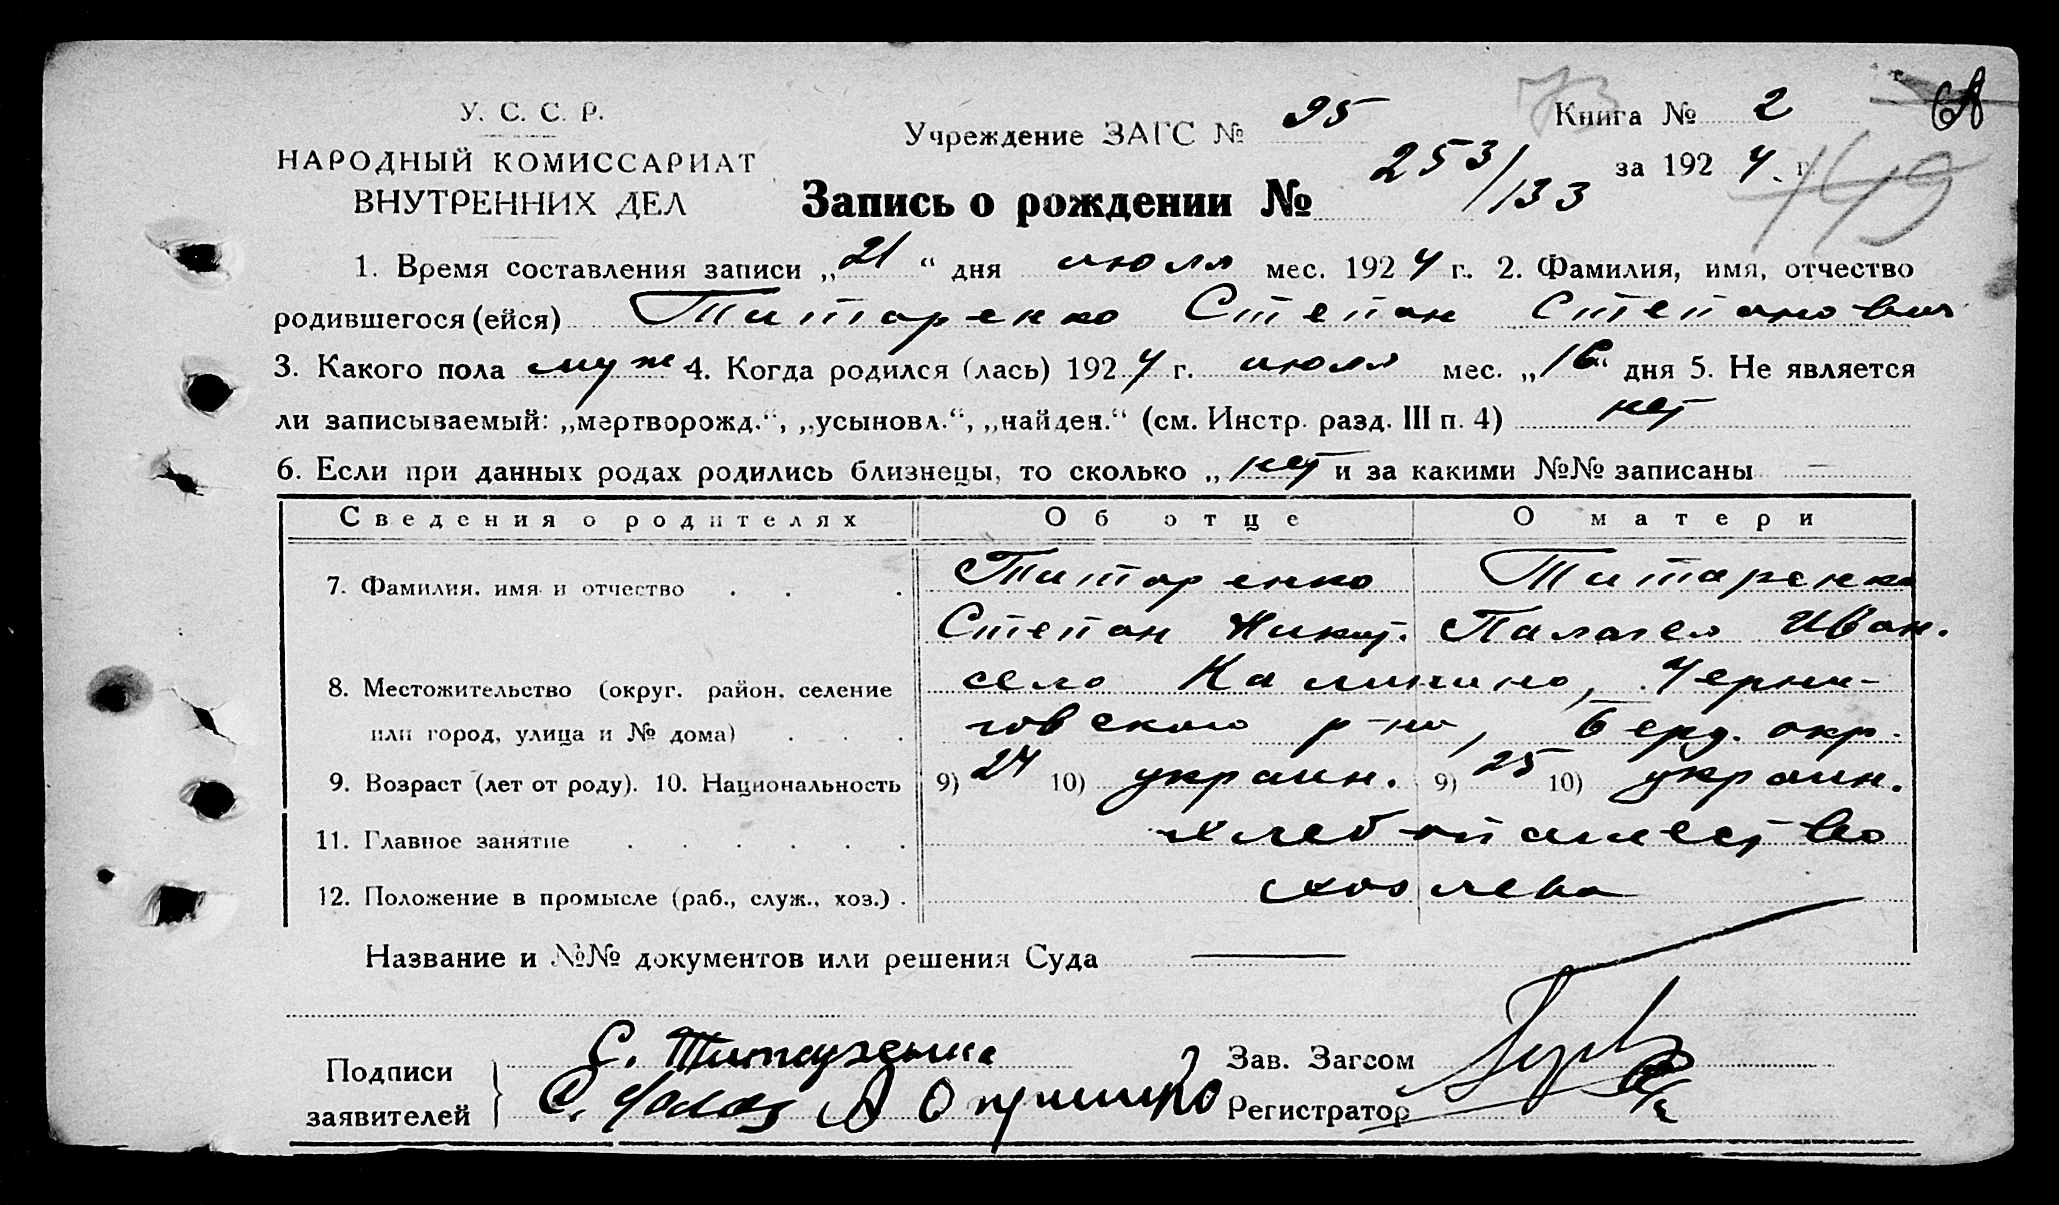 У. С. С. Р.
НАРОДНЫЙ КОМИССАРИАТ
ВНУТРЕННИХ ДЕЛ
Учреждение ЗАГС № 95
73
Книга № 2
за 1924 г.
149
Запись о рождении № 253/133
1. Время составления записи „21“ дня июля мес. 1924 г. 2. Фамилия, имя, отчество
родившегося (ейся) Титаренко Степан Степанович
3. Какого пола муж 4. Когда родился (лась) 1924 г. июля мес. „16“ дня 5. Не является
ли записываемый: „мертворожд.“, „усыновл.“, „найден.“ (см. Инстр. разд. III п. 4) нет
6. Если при данных родах родились близнецы, то сколько „нет и за какими №№ записаны —
Сведения о родителях Об отце О матери
7. Фамилия, имя и отчество . . . Титаренко Титаренко
Степан Никит. Палагея Иван.
8. Местожительство (округ. район, селение село Калинино, Черни-
или город, улица и № дома) . . . говского р-на, Берд. окр.
9. Возраст (лет от роду). 10. Национальность 9) 24 10) украин. 9) 25 10) украин.
11. Главное занятие . . . . . . хлебопашество
12. Положение в промысле (раб., служ., хоз.) . хозяева
Название и №№ документов или решения Суда —
Подписи
заявителей
С.
Зав. Загсом
Регистратор